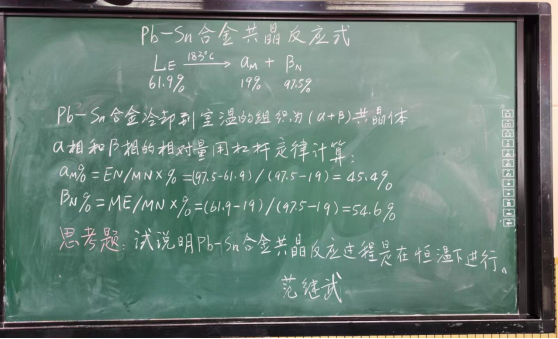 Pb-Sn合金共晶反应式
LE 183℃ → αM + βN
61.9% 19% 97.5%
Pb-Sn合金冷却到室温的组织为(α+β)共晶体
α相和β相的相对量用杠杆定律计算:
αM% = EN/MN×% =(97.5-61.9)/(97.5-19) = 45.4%
βN% = ME/MN×% =(61.9-19)/(97.5-19)=54.6%
思考题:试说明Pb-Sn合金共晶反应过程是在恒温下进行。
范继武